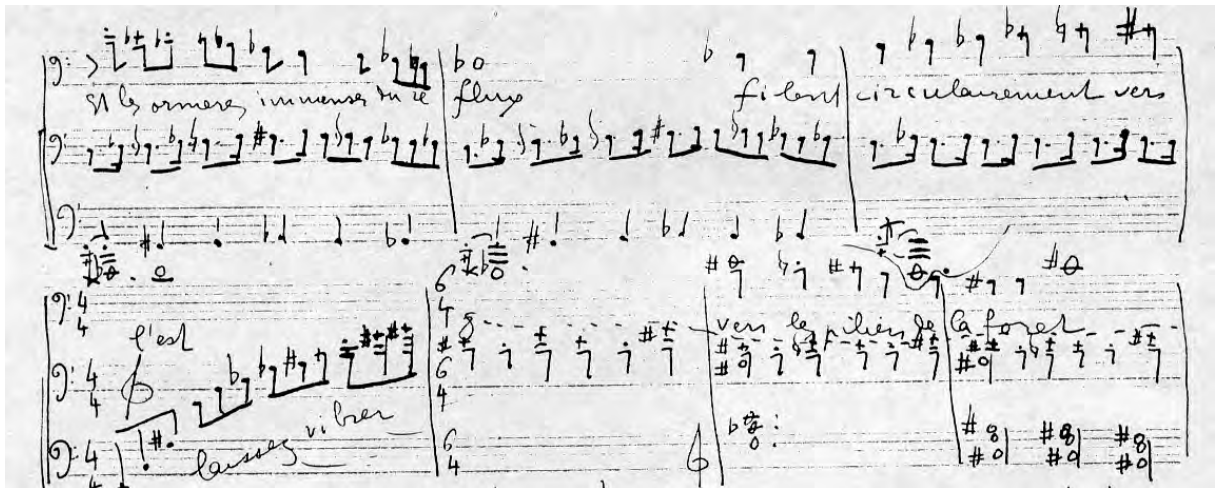 Et les ornieres immenses du re flux filent circulairement vers
4 4 6 4
vers les piliers de la foret
l'est
4 4 6 4
laissez vibrer
4 4 6 4